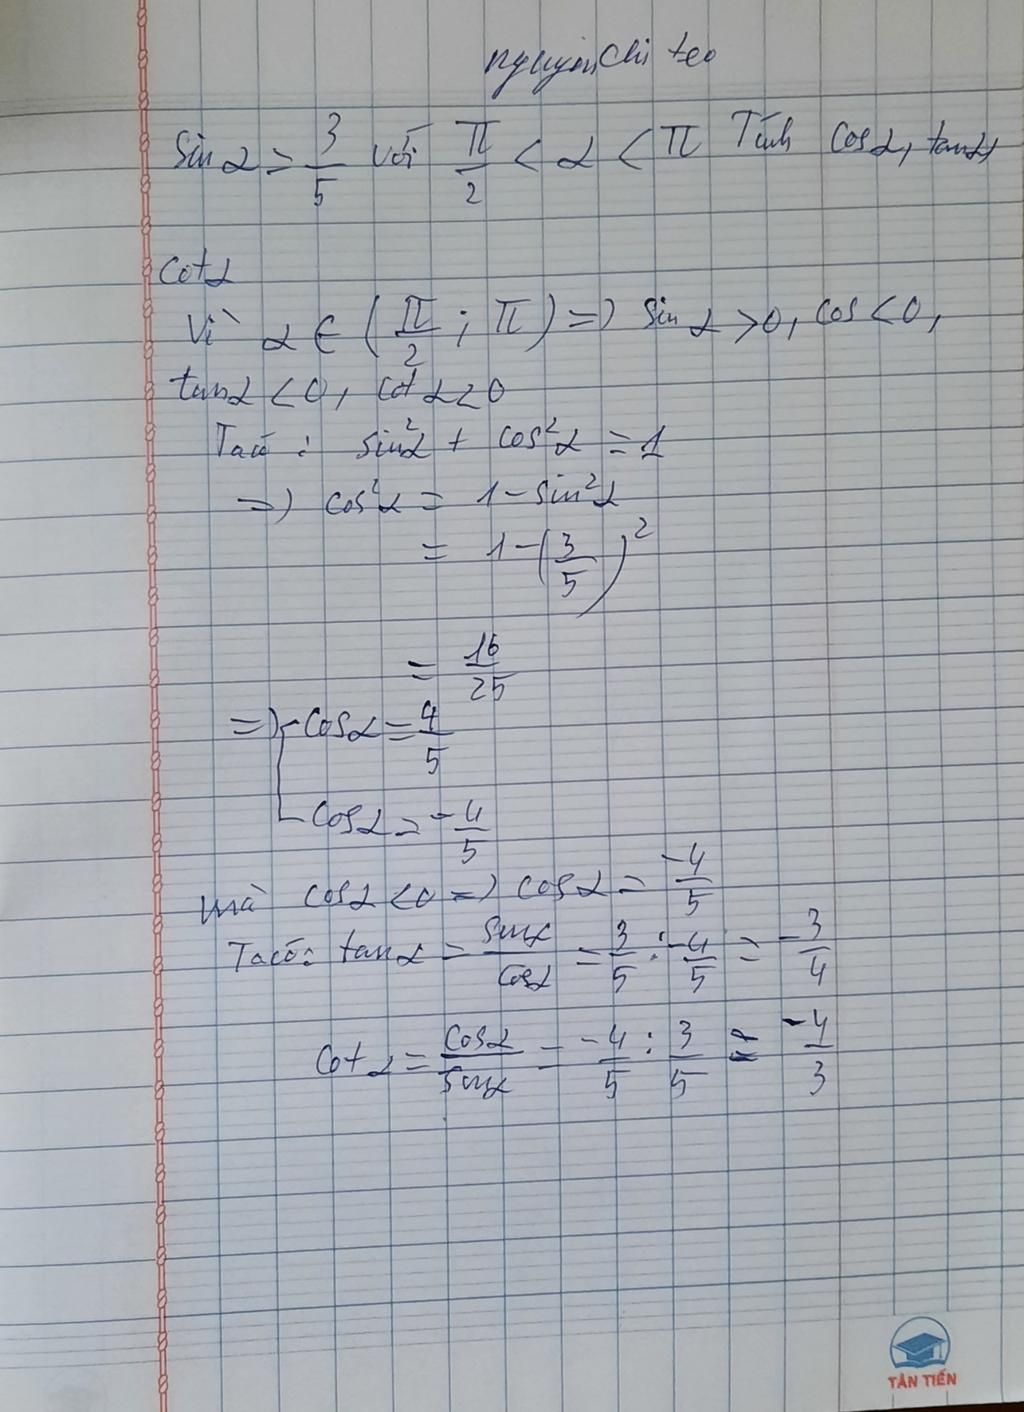 nguyễn chi teo
Sin α = 3/5 với π/2 < α < π Tính cosα, tanα,
cotα
Vì α ∈ (π/2 ; π) => sin α > 0, cos < 0,
tanα < 0, cot α < 0
Ta có : sin²α + cos²α = 1
=> cos²α = 1 - sin²α
= 1 - (3/5)²
= 16/25
=> [ cosα = 4/5
cosα = -4/5
mà cosα < 0 => cosα = -4/5
Ta có: tanα = sinα/cosα = 3/5 : -4/5 = -3/4
Cot α = cosα/sinα = -4/5 : 3/5 = -4/3
TÂN TIẾN